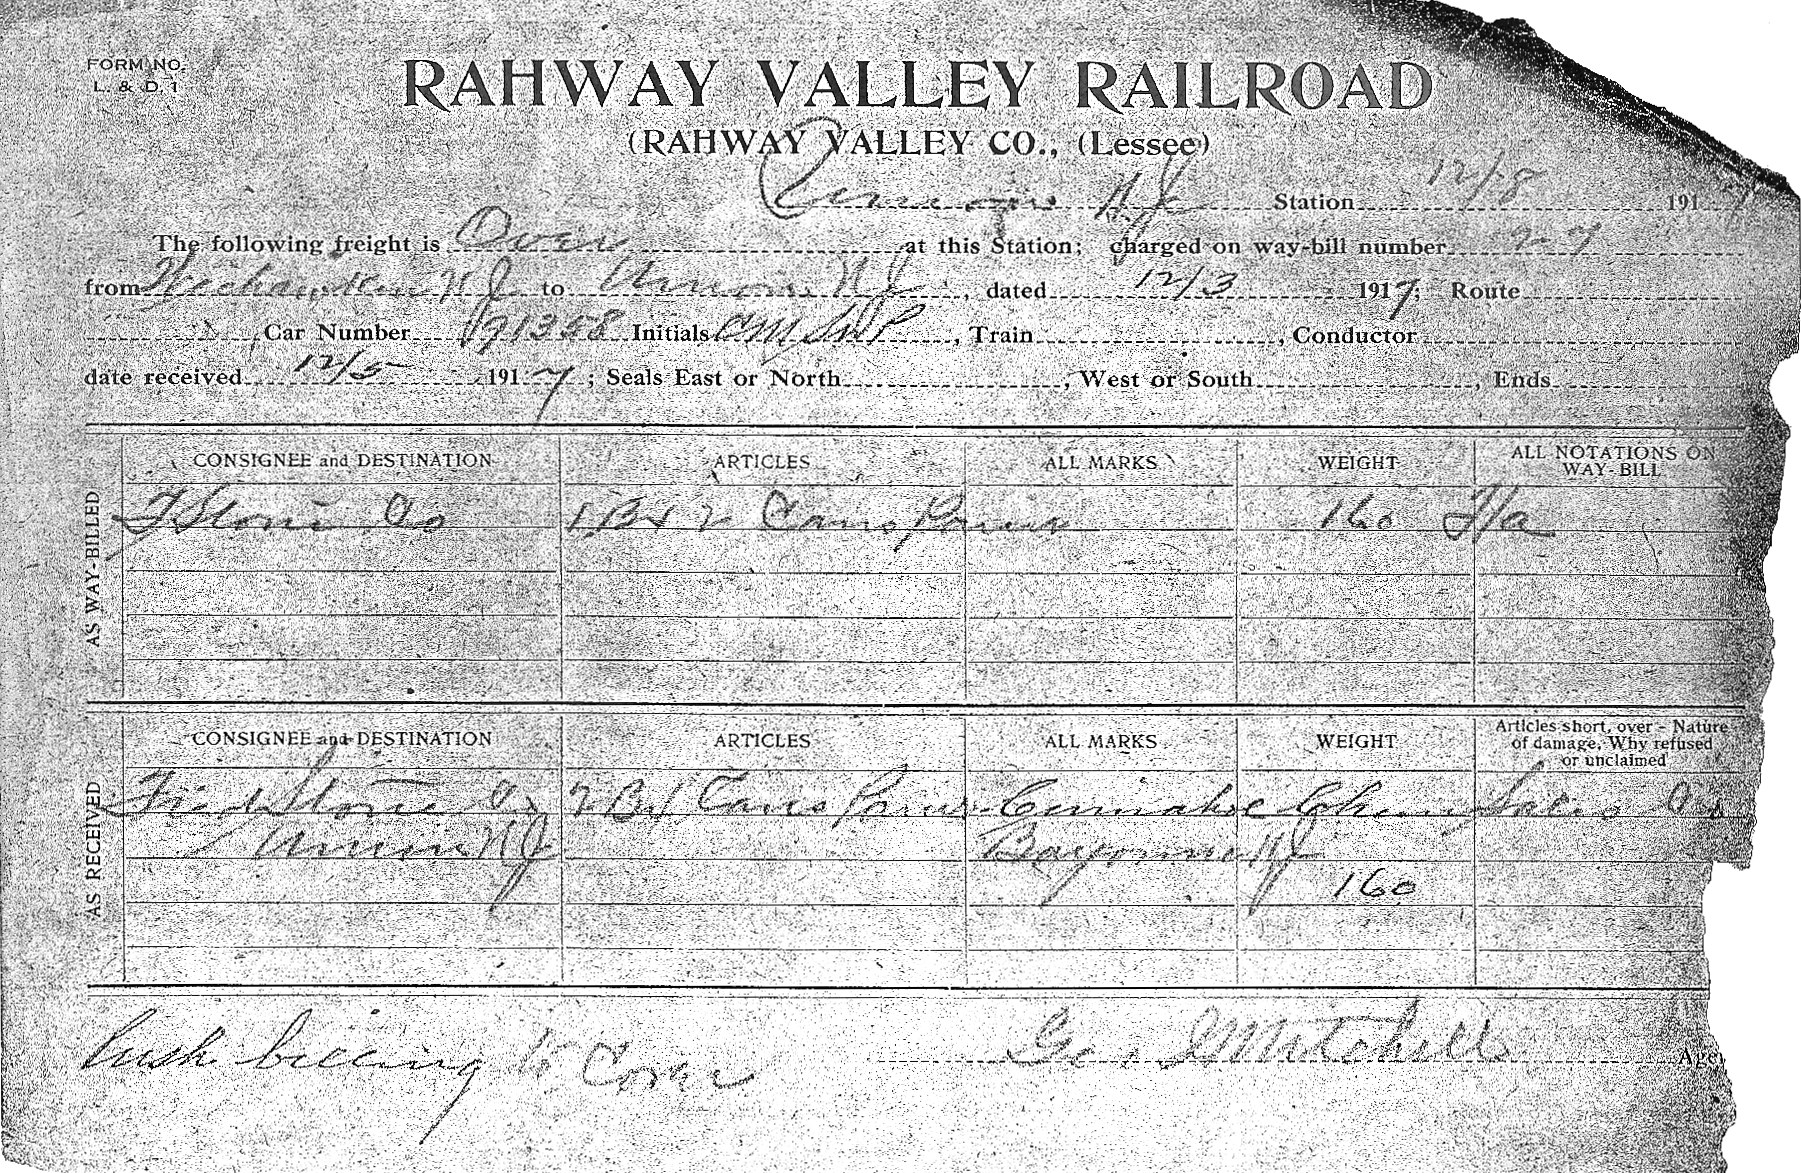 FORM NO.
L. & D. 1
RAHWAY VALLEY RAILROAD
(RAHWAY VALLEY CO., (Lessee)
N.J. Station 12/8 1917
The following freight is Over at this Station; charged on way-bill number
from Weehawken N J to Union N J, dated 12/3 1917; Route
Car Number 91358 Initials, Train, Conductor
date received 12/5 1917; Seals East or North, West or South, Ends
AS WAY-BILLED
CONSIGNEE and DESTINATION ARTICLES ALL MARKS WEIGHT ALL NOTATIONS ON WAY-BILL
F Stone Co 1 Bx 2 Cans 160
AS RECEIVED
CONSIGNEE and DESTINATION ARTICLES ALL MARKS WEIGHT Articles short, over - Nature of damage, Why refused or unclaimed
Stone Co 2 Bx Cans Chem Sales Co
Union N J Bayonne N J
160
Rush billing to Cover
Geo. Mitchell Agen